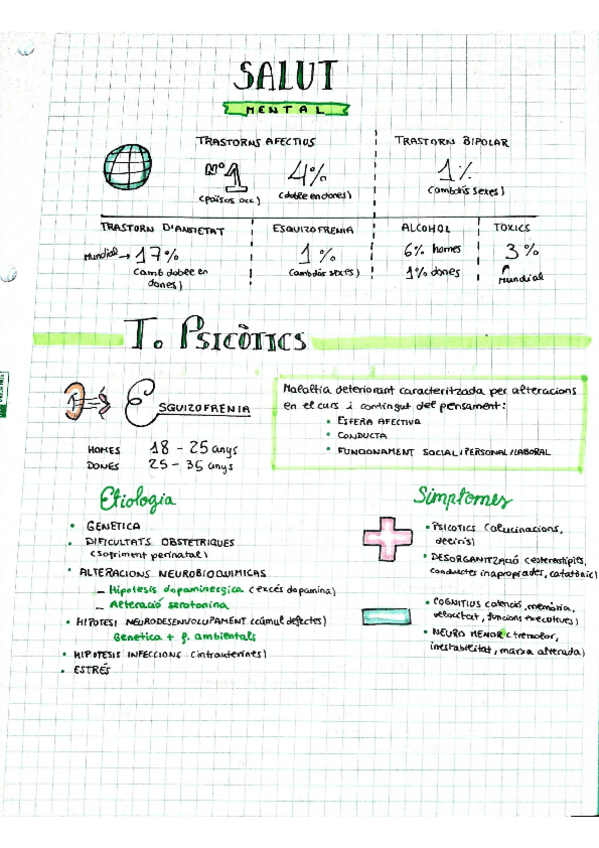 SALUT
MENTAL
TRASTORNS AFECTIUS
TRASTORN BIPOLAR
Nº1
4%
1%
(països occ)
(doble en dones)
(ambdós sexes)
TRASTORN D'ANSIETAT
ESQUIZOFRENIA
ALCOHOL
TOXICS
Mundial → 17%
1%
6% homes
3%
(amb doble en
dones)
(ambdós sexes)
1% dones
Mundial
T. PSICÒTICS
ESQUIZOFRENIA
Malaltia deteriorant caracteritzada per alteracions
en el curs i contingut del pensament:
• ESFERA AFECTIVA
• CONDUCTA
• FUNCIONAMENT SOCIAL i PERSONAL / LABORAL
HOMES 18 - 25 anys
DONES 25 - 35 anys
Etiologia
• GENETICA
• DIFICULTATS OBSTETRIQUES
(Sofriment perinatal)
• ALTERACIONS NEUROBIOQUIMICAS
- Hipotesis dopaminergica (excés dopamina)
- Alteració serotonina
• HIPOTESI NEURODESENVOLUPAMENT (cúmul defectes)
Genetica + f. ambientals
• HIPOTESIS INFECCIONS (intrauterines)
• ESTRÉS
Símptomes
• PSICOTICS (alucinacions,
deliris)
• DESORGANITZACIÓ (estereotípies,
conductes inapropiades, catatònic)
• COGNITIUS (atenció, memòria,
velocitat, funcions executives)
• NEURO MENOR (tremolor,
inestabilitat, marxa alterada)